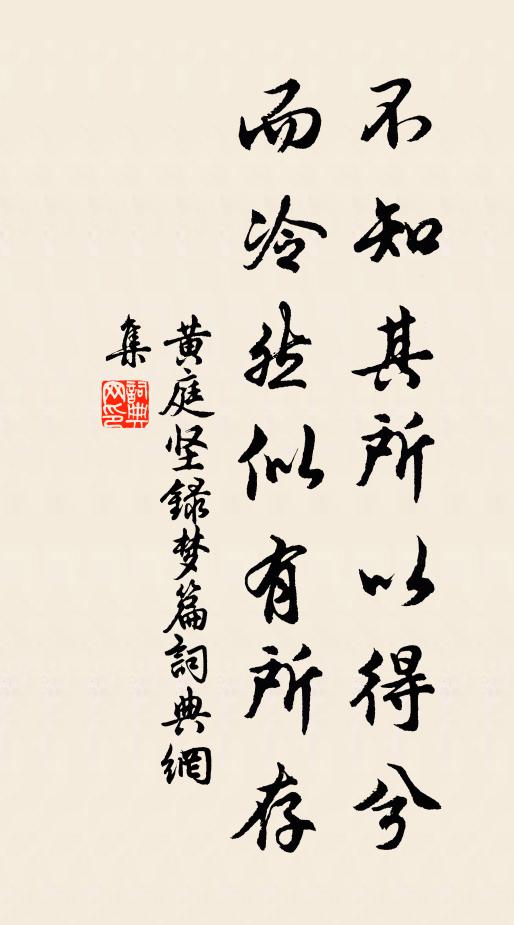 不知其所以得兮
而冷然似有所存
黄庭坚録梦篇詞典網
集
詞典
网印